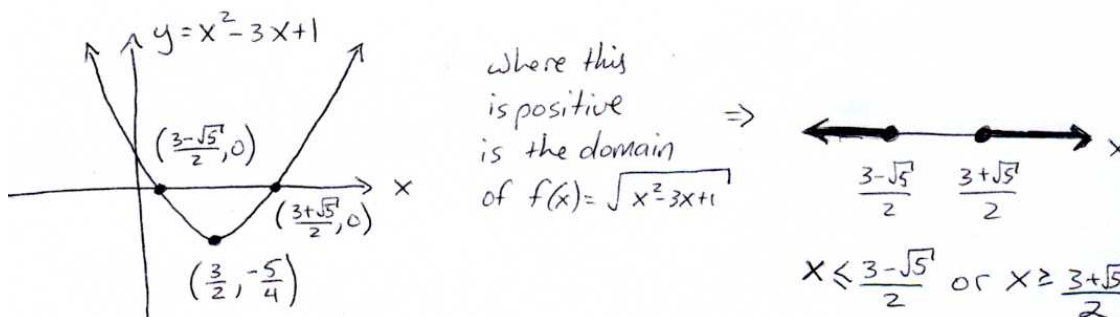 y = x² - 3x + 1
(3-√5/2, 0)
x
(3+√5/2, 0)
(3/2, -5/4)
where this
is positive ⇒
is the domain
of f(x) = √x²-3x+1
x
3-√5/2 3+√5/2
x ≤ 3-√5/2 or x ≥ 3+√5/2